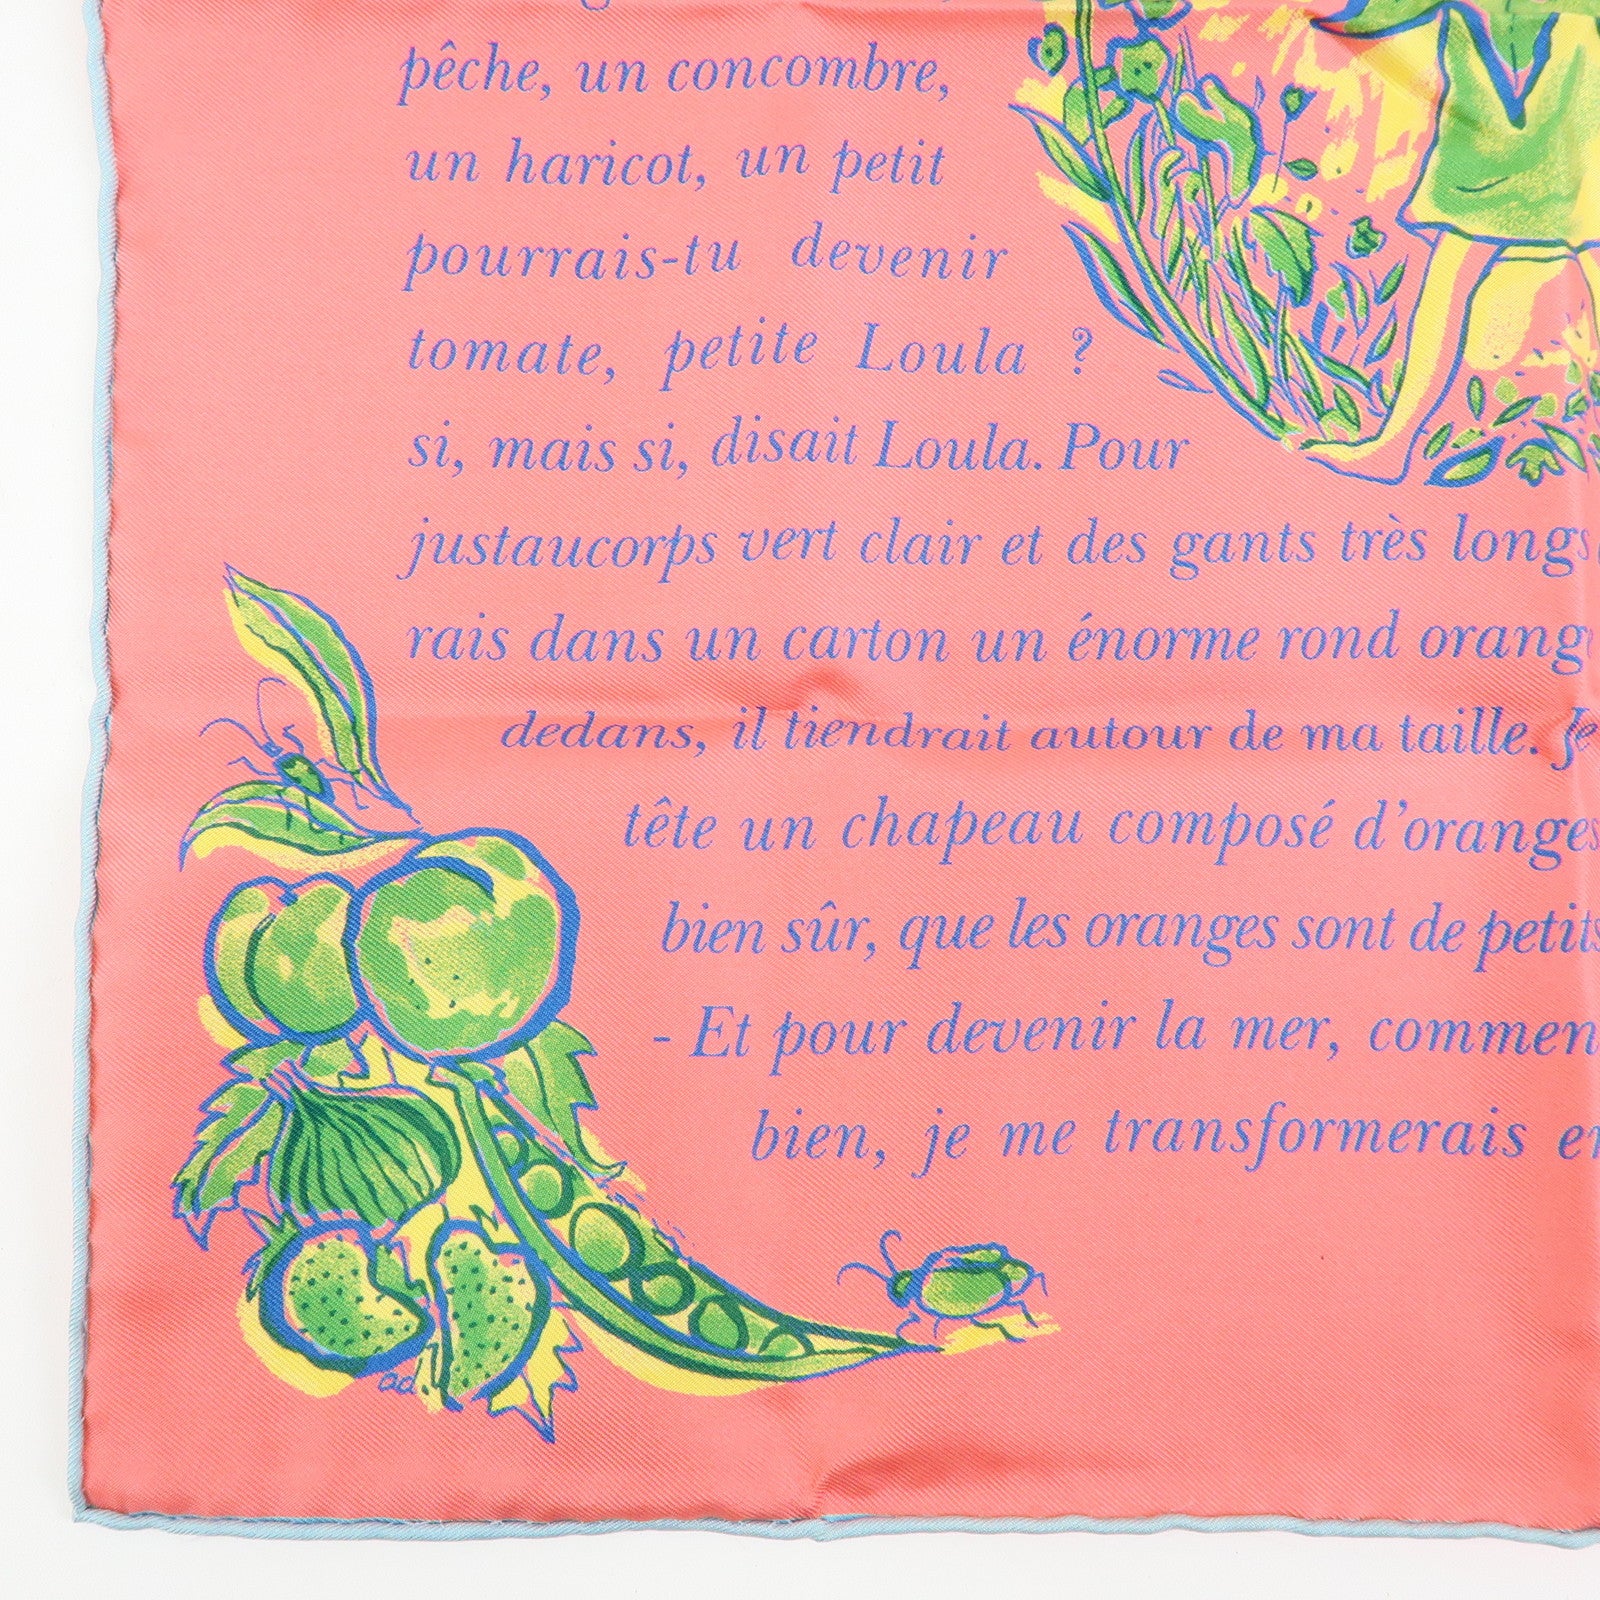 pêche, un concombre,
un haricot, un petit
pourrais-tu devenir
tomate, petite Loula ?
si, mais si, disait Loula. Pour
justaucorps vert clair et des gants très longs
rais dans un carton un énorme rond orang
dedans, il tiendrait autour de ma taille. Je
tête un chapeau composé d'oranges
bien sûr, que les oranges sont de petits
- Et pour devenir la mer, commen
bien, je me transformerais en
ad.